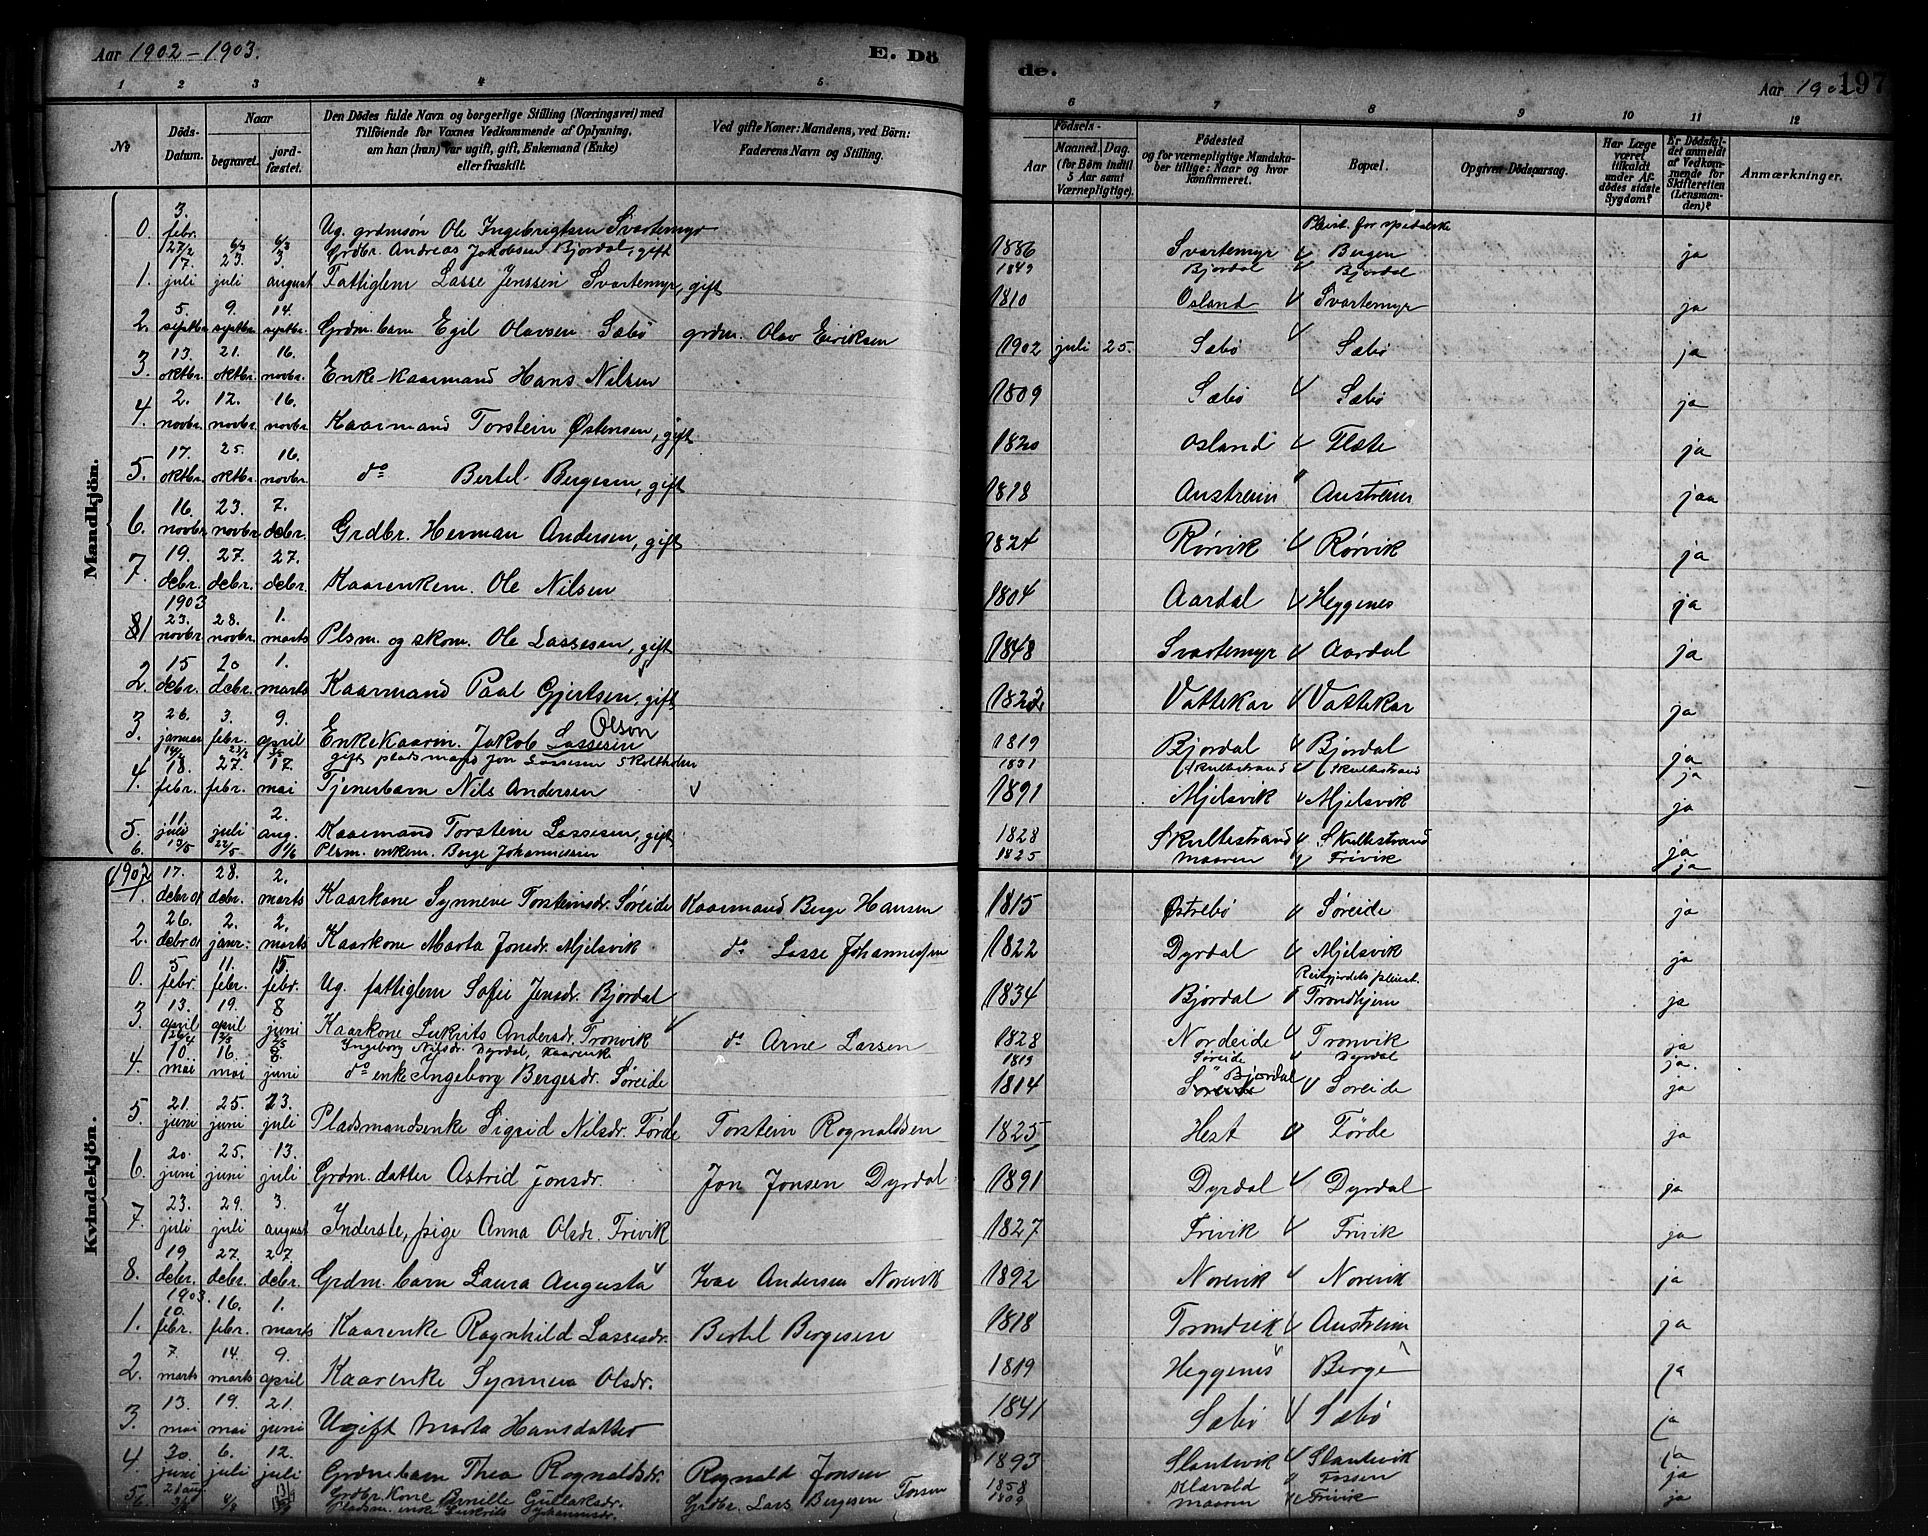 Aar 1902-1903.
E. Dö
de.
Aar 190
197
1 2 3 4 5
6 7 8 9 10 11 12
No
Döds-Datum.
Naar
begravet.
jord-fæstet.
Den Dödes fulde Navn og borgerlige Stilling (Næringsvei) med
Tilföiende for Voxnes Vedkommende af Oplysning,
om han (hun) var ugift, gift, Enkemand (Enke)
eller fraskilt.
Ved gifte Koner: Mandens, ved Börn:
Faderens Navn og Stilling.
Födsels-
Aar
Maaned. Dag.
(for Börn indtil
5 Aar samt
Værnepligtige).
Födested
og for værnepligtige Mandska-
ber tillige: Naar og hvor
konfirmeret.
Bopæl.
Opgiven Dödsaarsag.
Har Læge
været
tilkaldt
under Af-
dödes sidste
Sygdom?
Er Dödsfal-
det anmeldt
af Vedkom-
mende for
Skifteretten
(Lensman-
den)?
Anmærkninger.
Mandkjön.
0. 3. febr. Ug. grdmsön Ole Ingebrigtsen Svartemyr 1886 Svartemyr Pleiest. for spedalske Bergen ja
27/2 6/3 6/3 Grdbr. Andreas Jakobsen Bjordal, gift 1849 Bjordal Bjordal
1. 17. juli 23. juli 3. august Fattiglem Lasse Jenssen Svartemyr, gift 1810 Osland Svartemyr ja
2. 5. septbr. 9. septbr. 14. septbr. Grdm. barn Egil Olavsen Sæbö grdm. Olav Eiriksen 1902 juli 25. Sæbö Sæbö ja
3. 13. oktbr. 21. oktbr. 16. novbr. Enke-kaarmand Hans Nilsen 1809 Sæbö Sæbö ja
4. 2. novbr. 12. novbr. 16. novbr. Kaarmand Torstein Østensen, gift 1820 Osland Flæte ja
5. 17. oktbr. 25. oktbr. 16. novbr. do Bertel Bergesen, gift 1818 Austreim Austreim jaa
6. 16. novbr. 23. novbr. 7. debr. Grdbr. Herman Andersen, gift 1824 Rörvik Rörvik ja
7. 19. debr. 27. debr. 27. debr. Kaarenkem. Ole Nilsen 1804 Aardal Heggenes ja
1903
1 23. novbr. 28. novbr. 1. marts Plsm. og skom. Ole Lassesen, gift 1848 Svartemyr Aardal ja
2. 15 debr. 20 debr. 1. marts Kaarmand Paal Gjertsen, gift 1822 Vattekar Vattekar ja
3. 26. januar 3. febr. 9. april Enkekaarm. Jakob Lassesen Olson 1819 Bjordal Bjordal ja
gift pladsmand Jon Lassesen Skoltholm 1831 Skultestrand Skultestrand ja
4. 18. febr. 27. febr. 17. mai Tjenerbarn Nils Andersen 1891 Mjelsvik Mjelsvik ja
5. 11. juli juli 2. aug. Kaarmand Torstein Lassesen, gift 1828 Skultestrand Skultestrand ja
6. 13/5 22/5 1/6 Plsm. enkem. Berge Johannessen 1825 Maaren Frivik ja
Kvindekjön.
1902
1. 17. debr 01 28. debr. 2. marts Kaarkone Synneve Torsteinsdr. Söreide Kaarmand Berge Hansen 1815 Østrebö Söreide ja
2. 26. debr 01 2. janr. 2. marts Kaarkone Marta Jonsdr. Mjelsvik do Lasse Johannessen 1822 Dyrdal Mjelsvik ja
0. 5 febr. 11. febr. 15 febr. Ug. fattiglem Sofie Jensdr. Bjordal 1834 Bjordal Reitgjerdets pleiest. Trondhjem ja
3. 13. april 19. april 8 juni Kaarkone Lukrits Andersdr. Tronvik do Arne Larsen 1828 Nordeide Tronvik ja
Ingeborg Nilsdr. Dyrdal, kaarenk 1819 Söreide Dyrdal ja.
4. 10. mai 16. mai 8. juni do enke Ingeborg Bergesdr. Söreide 1814 Söreide Bjordal Soreide ja
5. 21. juni 25. juni 13. juli Pladsmandsenke Sigrid Nilsdr. Förde Torstein Rognaldsen 1825 Hest Förde ja
6. 20. juni 25. juni 13. juli Grdm. datter Astrid Jonsdr. Jon Jonsen Dyrdal 1891 Dyrdal Dyrdal ja
7. 23. juli 29. juli 3. august Inderste, pige Anna Olsdr. Frivik 1827 Frivik Frivik ja
8. 19 debr. 27. debr. 27 debr. Grdm. barn Laura Augusta Ivar Andersen Norevik 1892 Norevik Norevik ja
1903.
1. 10. febr. 16. febr. 1. marts Kaarenke Ragnhild Lassesdr. Bertel Bergesen 1818 Trondvik Austreim ja
2. 7. marts 14. marts 9. april Kaarenke Synneva Olsdr. 1819 Heggenes Berge ja
3. 13. mai 19. mai 21. juni Ugift Marta Hansdatter 1841 Sæbö Sæbö ja
4. 30. juni 6. juli 12. juli Grdmebarn Thea Rognaldsdr. Rognald Jonsen 1893 Slantevik Slantevik ja
5. Grdbr. Kone Pernille Gullaksdr. Grdbr. Lars Bergesen Fossen 1858 Klævold Fossen ja
6. Pladsm. enke Lukrits Johannesdr. 1809 Maaren Frivik ja